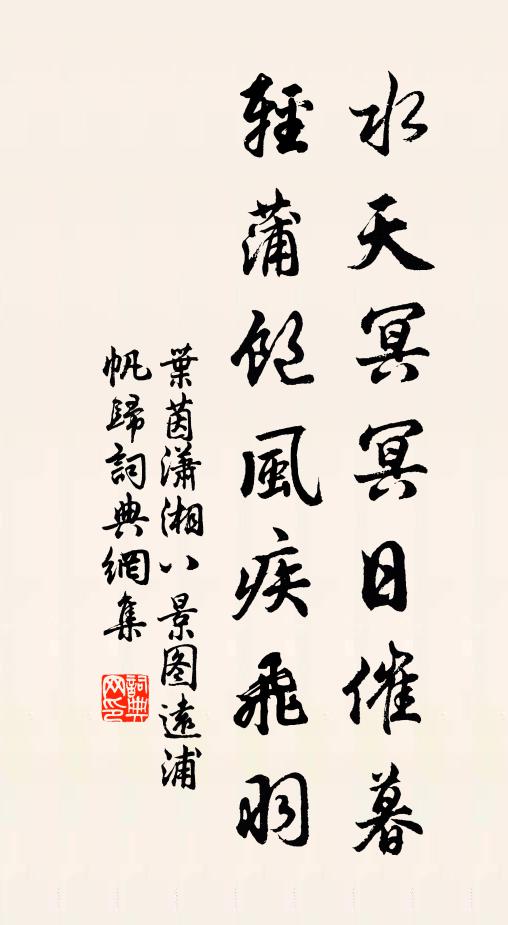 水天冥冥日催暮
輕蒲飽風疾飛羽
葉茵瀟湘八景图遠浦
帆歸詞典網集
詞典网印